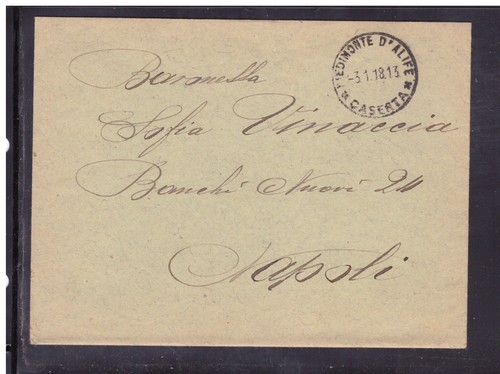 PIEDIMONTE D'ALIFE
-3.1.18.13
* CASERTA *
Baronessa
Sofia Vinaccia
Banchi Nuovi 24
Napoli